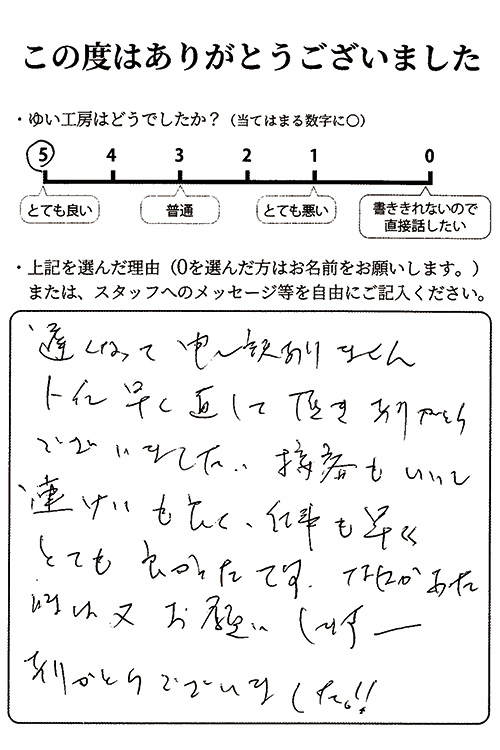 この度はありがとうございました
・ゆい工房はどうでしたか？（当てはまる数字に〇）
5 4 3 2 1 0
とても良い 普通 とても悪い 書ききれないので直接話したい
・上記を選んだ理由（0を選んだ方はお名前をお願いします。）
または、スタッフへのメッセージ等を自由にご記入ください。
遅くなって申し訳ありません
トイレ早く直して頂きありがとう
ございました。接客もいいし
連けいも良く、仕事も早く
とても良かったです。何かあった
時は又お願いします―
ありがとうございました!!